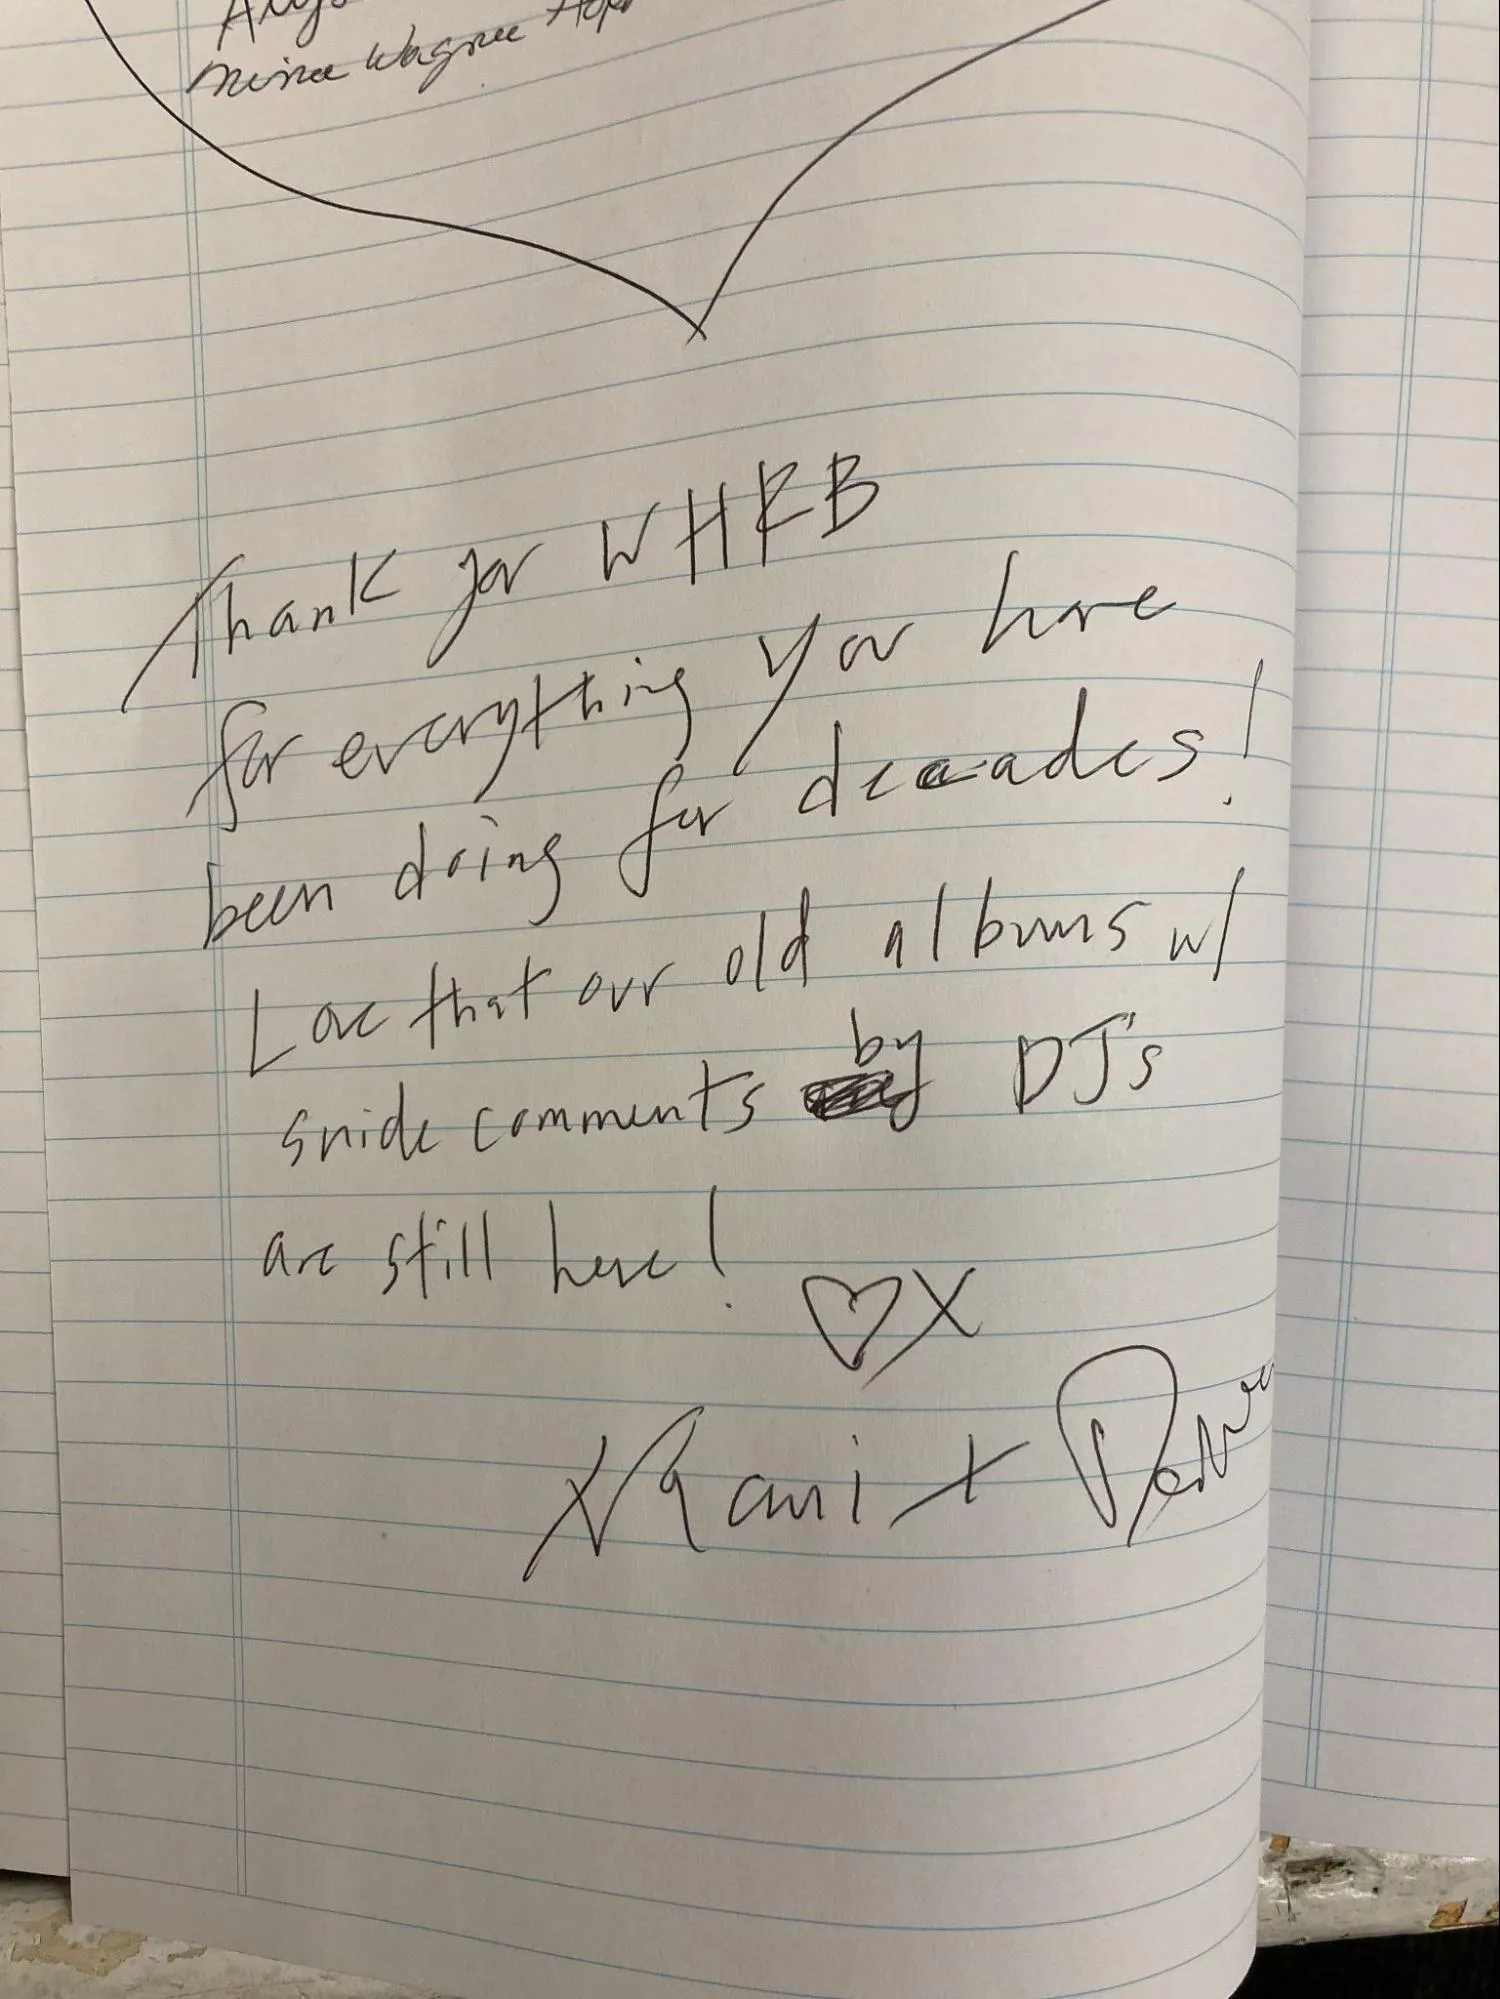 Mina Wagner
Thank for WHRB
for everything you have
been doing for decades!
Love that our old albums w/
snide comments by DJ's
are still here!
♡X
X Rani +